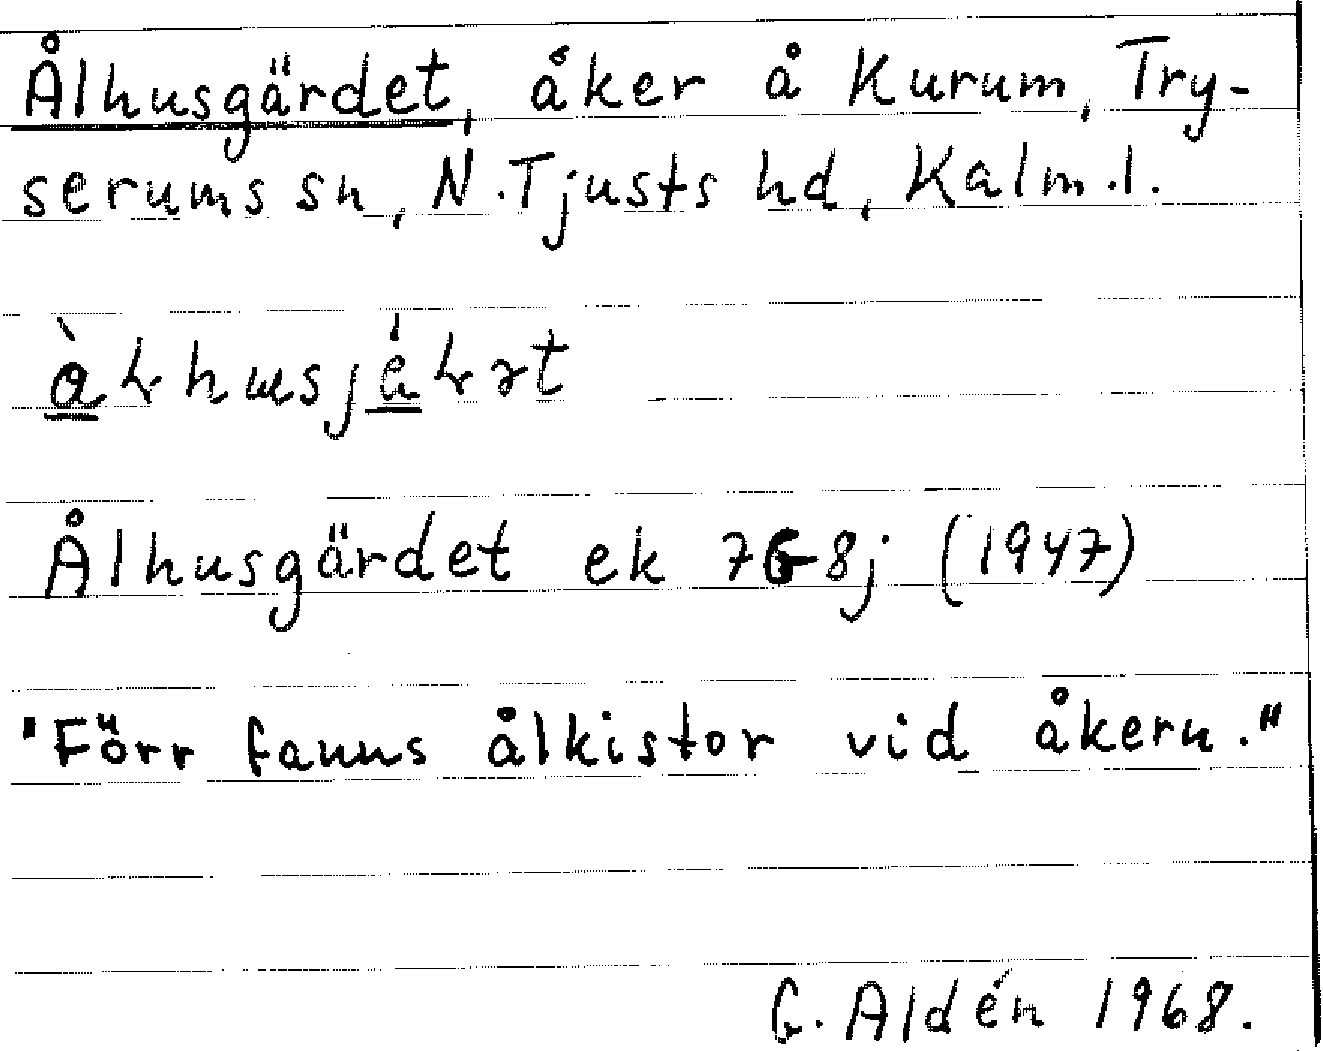 Ålhusgärdet, åker å Kurum, Try-
serums sn, N. Tjusts hd, Kalm. l.
Ålhusgärdet ek 7G8j (1947)
"Förr fanns ålkistor vid åkern."
G. Aldén 1968.